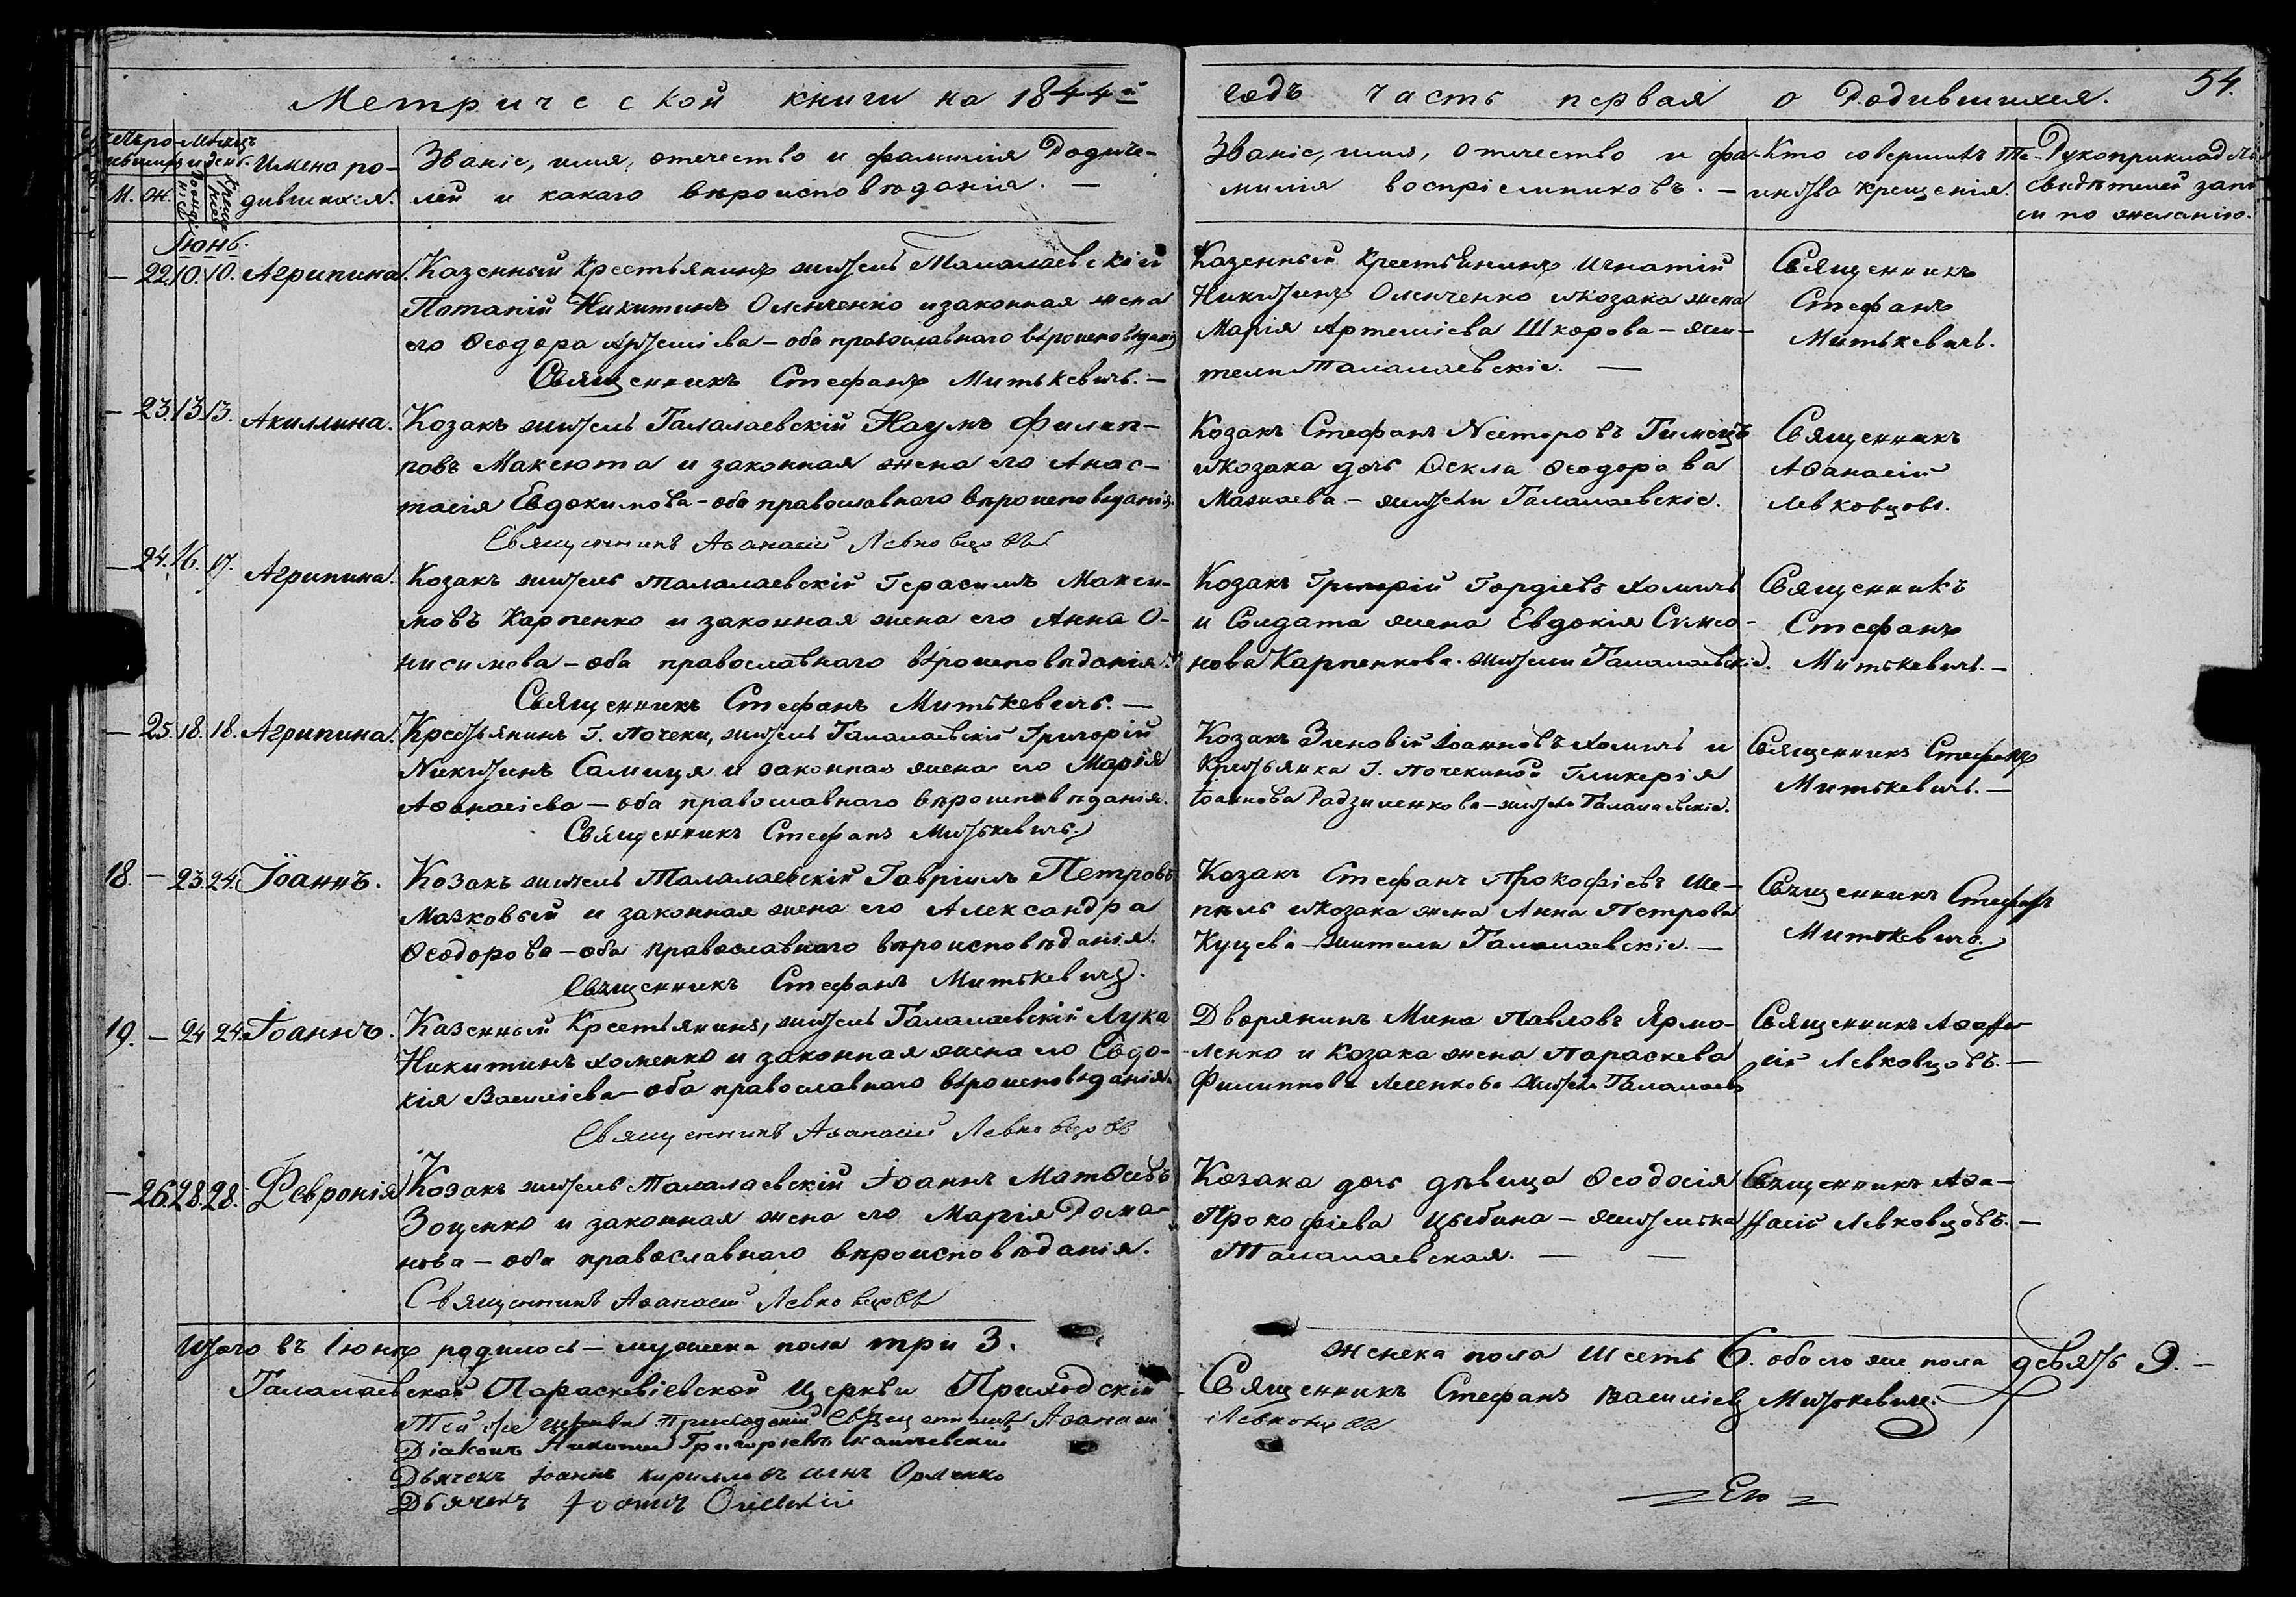 Метрической книги на 1844й
годъ часть первая о Родившихся. 54.
Имена ро-
дившихся.
М. Ж.
Званіе, имя, отечество и фамилія Родите-
лей и какаго вѣроисповѣданія. —
Званіе, имя, отечество и фа-
милія воспріемниковъ. —
Кто совершилъ та-
инство крещенія.
Рукоприкладст
свидѣтелей запи
си по желанію.
Іюнь.
— 22. 10. 10. Агрипина. Казенный Крестьянинъ житель Талалаевскій
Потапій Никитинъ Оленченко и законная жена
его Ѳеодора Артеміева — оба православнаго вѣроисповѣданія
Священникъ Стефанъ Митькевичъ. —
Казенный Крестьянинъ Игнатій
Никитинъ Оленченко и козака жена
Марія Артеміева Шкорова — жи-
тели Талалаевскіе. —
Священникъ
Стефанъ
Митькевичъ.
— 23. 13. 13. Акиллина. Козакъ житель Талалаевскій Наумъ Филип-
повъ Максюта и законная жена его Анас-
тасія Евдокимова — оба православнаго вѣроисповѣданія.
Священникъ Аѳанасій Левковцовъ
Козакъ Стефанъ Несторовъ
и козака дочь Ѳекла Ѳеодорова
— жители Талалаевскіе.
Священникъ
Аѳанасій
Левковцовъ.
— 24. 16. 17. Агрипина. Козакъ житель Талалаевскій Герасимъ Макси-
мовъ Карпенко и законная жена его Анна О-
нисимова — оба православнаго вѣроисповѣданія.
Священникъ Стефанъ Митькевичъ. —
Козакъ Григорій Гордіевъ Хомичъ
и Солдата жена Евдокія Симо-
нова Карпенкова. жители Талалаевскіе.
Священникъ
Стефанъ
Митькевичъ. —
— 25. 18. 18. Агрипина. Крестьянинъ Г. Почеки, житель Талалаевскій Григорій
Никитинъ Самица и законная жена его Марія
Аѳанасіева — оба православнаго вѣроисповѣданія.
Священникъ Стефанъ Митькевичъ.
Козакъ Зиновій Іоанновъ Хомичъ и
Крестьянка Г. Почекиной Гликерія
Іоаннова Радзименкова — жители Талалаевскіе.
Священникъ Стефанъ
Митькевичъ. —
18. — 23. 24. Іоаннъ. Козакъ житель Талалаевскій Гавріилъ Петровъ
Мазковый и законная жена его Александра
Ѳеодорова — оба православнаго вѣроисповѣданія.
Священникъ Стефанъ Митькевичъ.
Козакъ Стефанъ Прокофіевъ Ше-
пель и козака жена Анна Петрова
Куцева — жители Талалаевскіе. —
Священникъ Стефанъ
Митькевичъ.
19. — 24 24. Іоаннъ. Казенный Крестьянинъ, житель Талалаевскій Лука
Никитинъ Хоменко и законная жена его Евдо-
кія Василіева — оба православнаго вѣроисповѣданія.
Священникъ Аѳанасій Левковцовъ
Дворянинъ Мина Павловъ Ярмо-
ленко и Козака жена Параскева
Филиппова Лесенкова жители Талалаев
Священникъ Аѳана-
сій Левковцовъ. —
— 26. 28. 28. Февронія Козакъ житель Талалаевскій Іоаннъ Матѳѣевъ
Зоценко и законная жена его Марія Рома-
нова — оба православнаго вѣроисповѣданія.
Священникъ Аѳанасій Левковцовъ
Козака дочь дѣвица Ѳеодосія
Прокофіева Цыбина — жителька
Талалаевская. —
Священникъ Аѳа-
насій Левковцовъ. —
Итого въ Іюнѣ родилось — мужеска пола три 3.
женска пола шесть 6. обоего же пола девять 9. —
Талалаевской Параскевіевской Церкви Приходскій
Священникъ Стефанъ Василіевъ Митькевичъ.
Той же церкви Приходскій Священникъ Аѳанасій
Левковцовъ
Діаконъ Никита Григоріевъ
Дьячекъ Іоаннъ Кирилловъ сынъ
Дьячекъ Іоаннъ